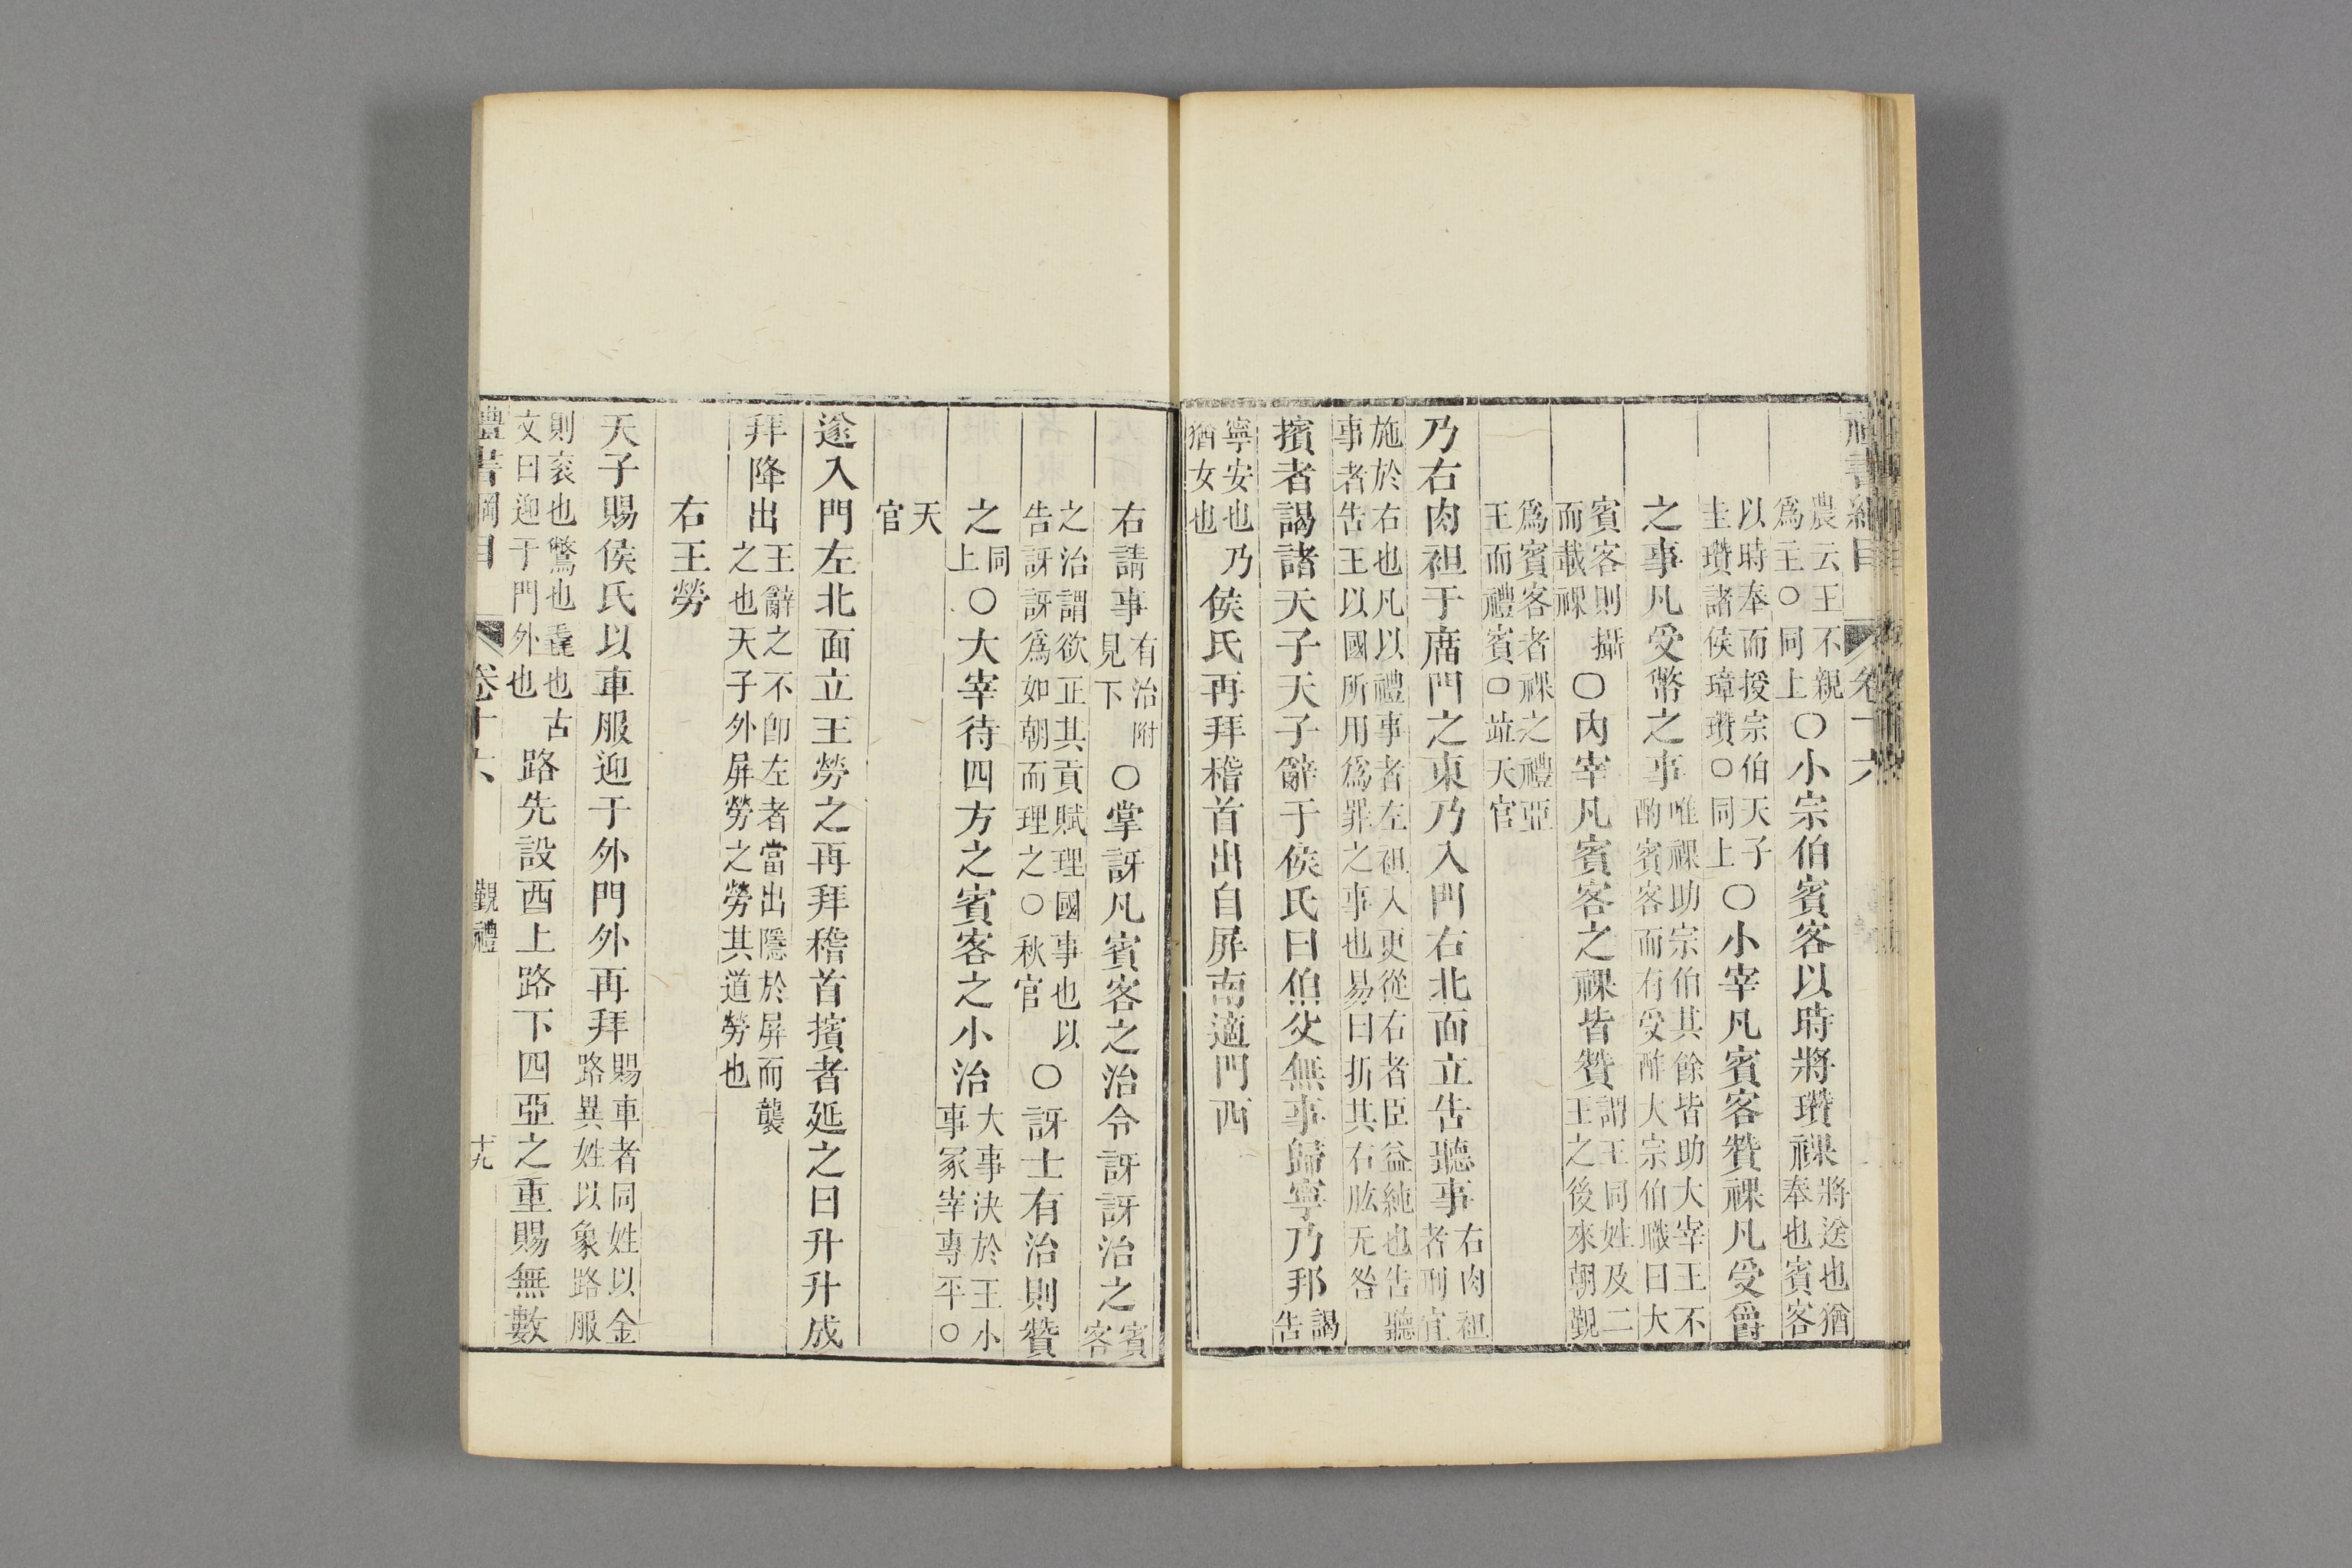 禮書綱目 卷十六
農云王不親
爲王○同上
○小宗伯賓客以時將瓚祼
將送也猶
奉也賓客
以時奉而授宗伯天子
圭瓚諸侯璋瓚○同上
○小宰凡賓客贊祼凡受爵
之事凡受幣之事
唯祼助宗伯其餘皆助大宰王不
酌賓客而有受酢大宗伯職曰大
賓客則攝
而載祼
○内宰凡賓客之祼皆贊
謂王同姓及二
王之後來朝覲
爲賓客者祼之禮亞
王而禮賓○竝天官
乃右肉袒于廟門之東乃入門右北面立告聽事
右肉袒
者刑宜
施於右也凡以禮事者左袒入更從右者臣益純也告聽
事者告王以國所用爲罪之事也易曰折其右肱无咎
擯者謁諸天子天子辭于侯氏曰伯父無事歸寧乃邦
謁
告
寧安也乃
猶女也
侯氏再拜稽首出自屏南適門西
右請事
有治附
見下
○掌訝凡賓客之治令訝訝治之
賓
客
之治謂欲正其貢賦理國事也以
告訝訝爲如朝而理之○秋官
○訝士有治則贊
之
同
上
○大宰待四方之賓客之小治
大事決於王小
事冢宰專平○
天
官
遂入門左北面立王勞之再拜稽首擯者延之曰升升成
拜降出
王辭之不卽左者當出隱於屏而襲
之也天子外屏勞之勞其道勞也
右王勞
天子賜侯氏以車服迎于外門外再拜
賜車者同姓以金
路異姓以象路服
則衮也鷩也毳也古
文曰迎于門外也
路先設西上路下四亞之重賜無數
禮書綱目 卷十六 覲禮 十九